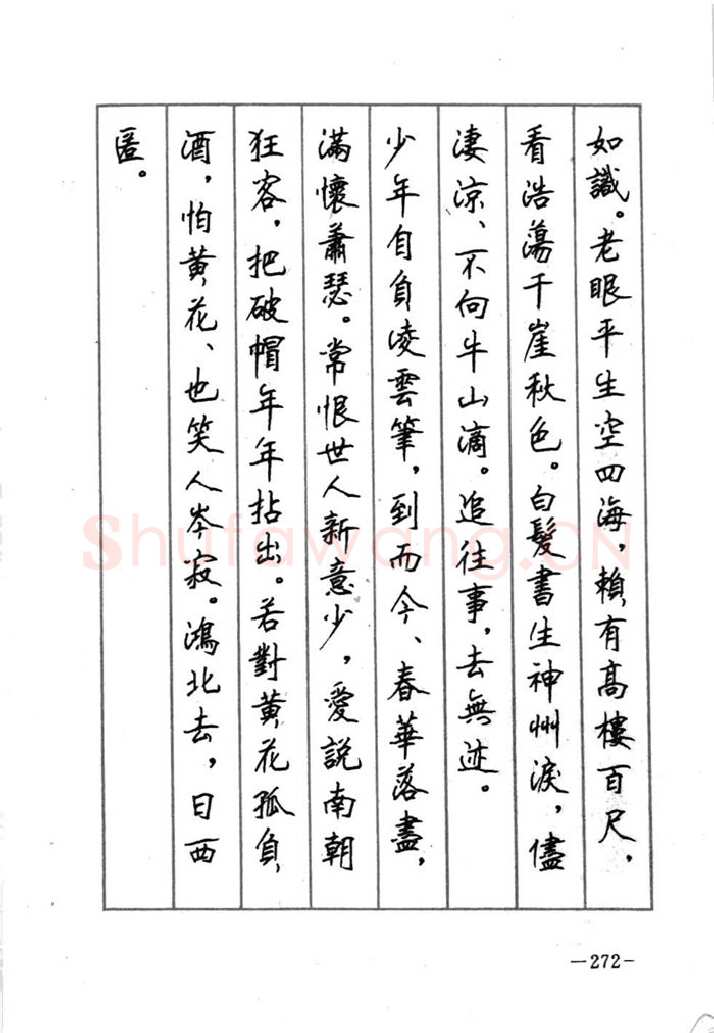 如識。老眼平生空四海，賴有高樓百尺，
看浩蕩千崖秋色。白髮書生神州淚，儘
淒涼、不向牛山滴。追往事，去無迹。
少年自負凌雲筆，到而今、春華落盡，
滿懷蕭瑟。常恨世人新意少，愛說南朝
狂客，把破帽年年拈出。若對黃花孤負
酒，怕黃花、也笑人岑寂。鴻北去，日西
匿。
Shufawang.CN
—272—